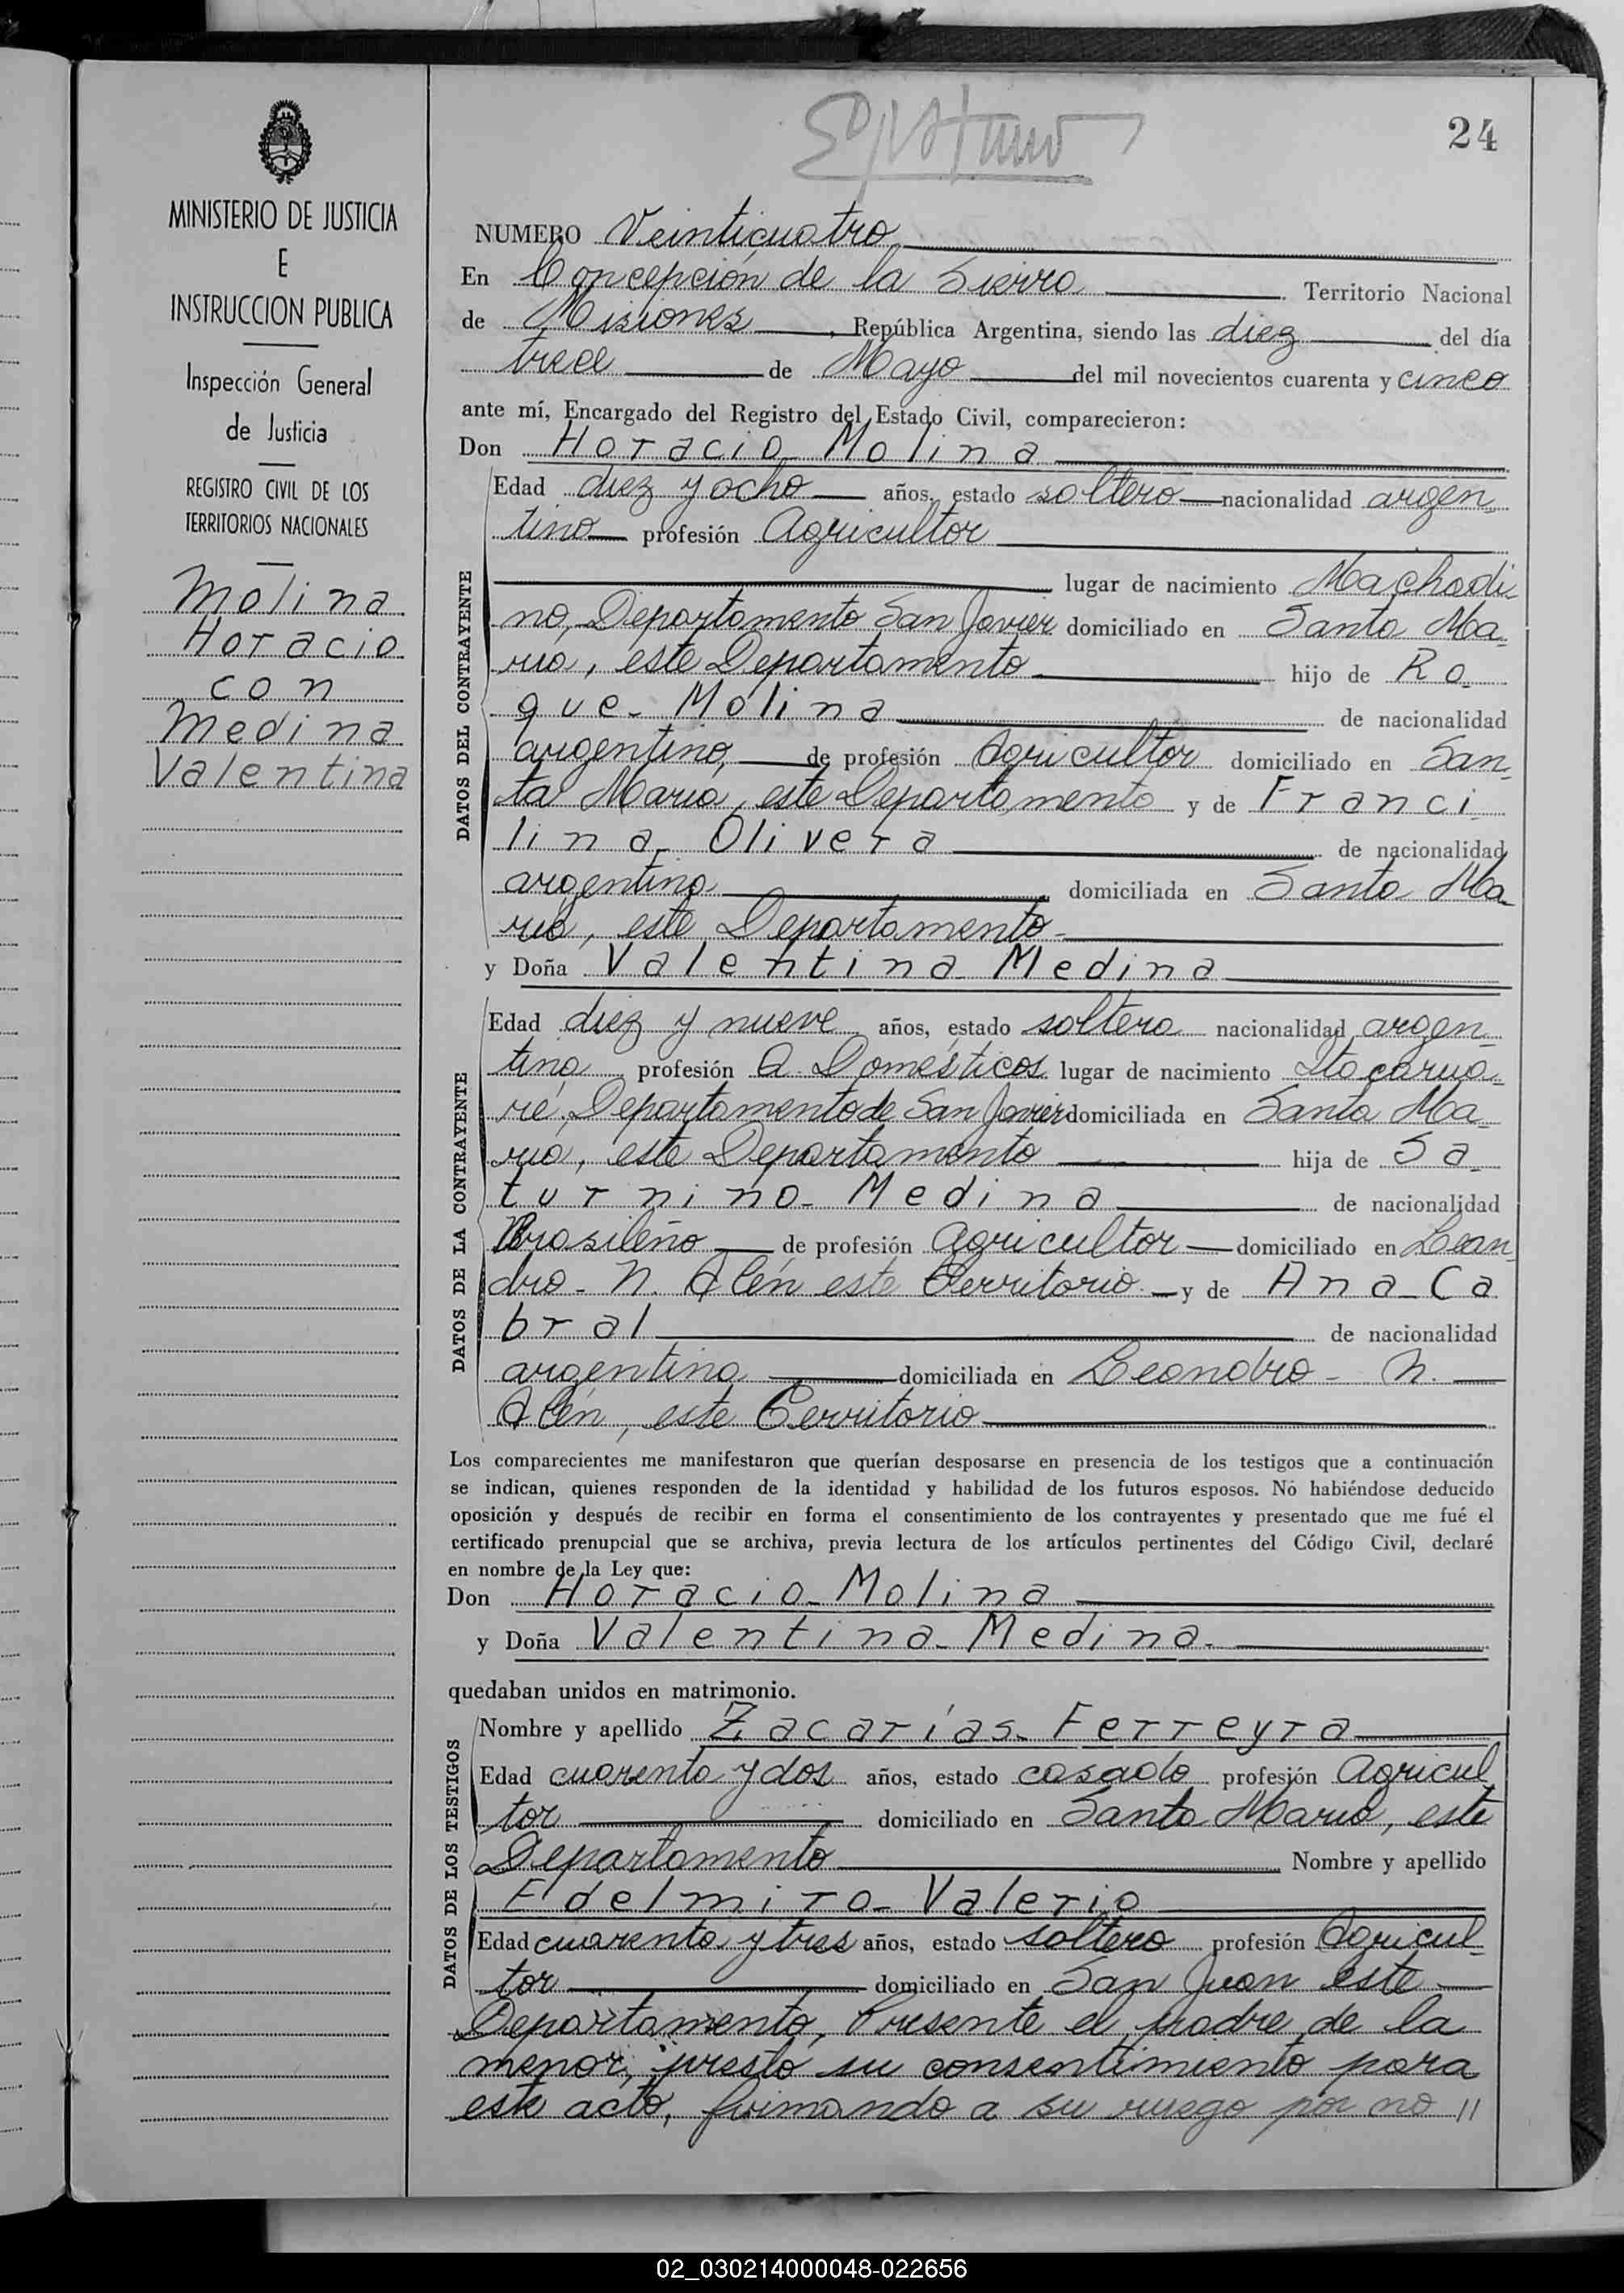 24
MINISTERIO DE JUSTICIA
E
INSTRUCCION PUBLICA
Inspección General
de Justicia
REGISTRO CIVIL DE LOS
TERRITORIOS NACIONALES
Molina
Horacio
con
Medina
Valentina
NUMERO Veinticuatro
En Concepción de la Sierra Territorio Nacional
de Misiones, República Argentina, siendo las diez del día
trece de Mayo del mil novecientos cuarenta y cinco
ante mí, Encargado del Registro del Estado Civil, comparecieron:
Don Horacio Molina
DATOS DEL CONTRAYENTE
Edad diez y ocho años, estado soltero nacionalidad argen-
tino profesión Agricultor
lugar de nacimiento Machadi-
no, Departamento San Javier domiciliado en Santa Ma-
ria, este Departamento hijo de Ro-
que- Molina de nacionalidad
argentino, de profesión Agricultor domiciliado en San-
ta Maria, este Departamento y de Franci-
lina- Olivera de nacionalidad
argentina domiciliada en Santa Ma-
ria, este Departamento-
y Doña Valentina Medina
DATOS DE LA CONTRAYENTE
Edad diez y nueve años, estado soltera nacionalidad argen-
tina profesión Q. Domésticos lugar de nacimiento Itacarua-
ré, Departamento de San Javier domiciliada en Santa Ma-
ria, este Departamento hija de Sa-
turnino- Medina de nacionalidad
Brasileño de profesión Agricultor domiciliado en Lean-
dro- N. Alén este Territorio y de Ana-Ca
bral de nacionalidad
argentina domiciliada en Leandro- N.
Alén, este Territorio
Los comparecientes me manifestaron que querían desposarse en presencia de los testigos que a continuación
se indican, quienes responden de la identidad y habilidad de los futuros esposos. No habiéndose deducido
oposición y después de recibir en forma el consentimiento de los contrayentes y presentado que me fué el
certificado prenupcial que se archiva, previa lectura de los artículos pertinentes del Código Civil, declaré
en nombre de la Ley que:
Don Horacio- Molina
y Doña Valentina- Medina-
quedaban unidos en matrimonio.
DATOS DE LOS TESTIGOS
Nombre y apellido Zacarías- Ferreyra
Edad cuarenta y dos años, estado casado profesión Agricul-
tor domiciliado en Santa Maria, este
Departamento Nombre y apellido
Edelmiro- Valerio
Edad cuarenta y tres años, estado soltero profesión Agricul-
tor domiciliado en San Juan este
Departamento, Presente el padre de la
menor, prestó su consentimiento para
este acto, firmando a su ruego por no //
02_030214000048-022656